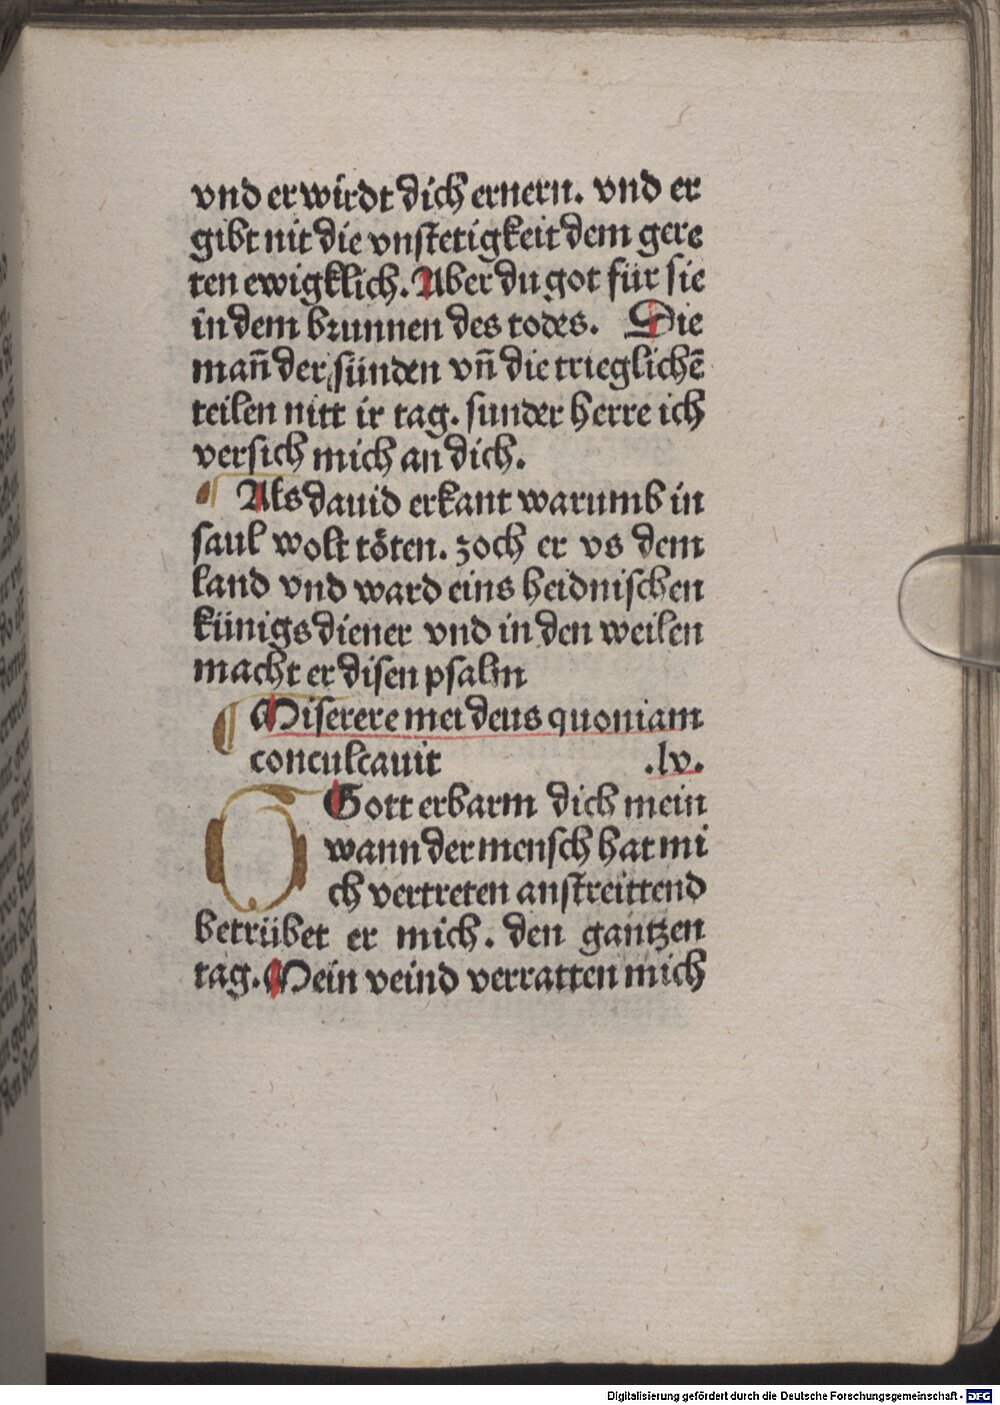 vnd er wirdt dich ernern. vnd er
gibt nit die vnstetigkeit dem gere
ten ewigklich. Aber du got für sie
in dem brunnen des todes. Die
man̄ der sünden vn̄ die trieglichē
teilen nitt ir tag. sunder herre ich
versich mich an dich.
Als dauid erkant warumb in
saul wolt töten. zoch er vs dem
land vnd ward eins heidnischen
künigs diener vnd in den weilen
macht er disen psalm
Miserere mei deus quoniam
conculcauit .lv.
O Gott erbarm dich mein
wann der mensch hat mi
ch vertreten anstreittend
betrübet er mich. den gantzen
tag. Mein veind verratten mich
Digitalisierung gefördert durch die Deutsche Forschungsgemeinschaft - DFG